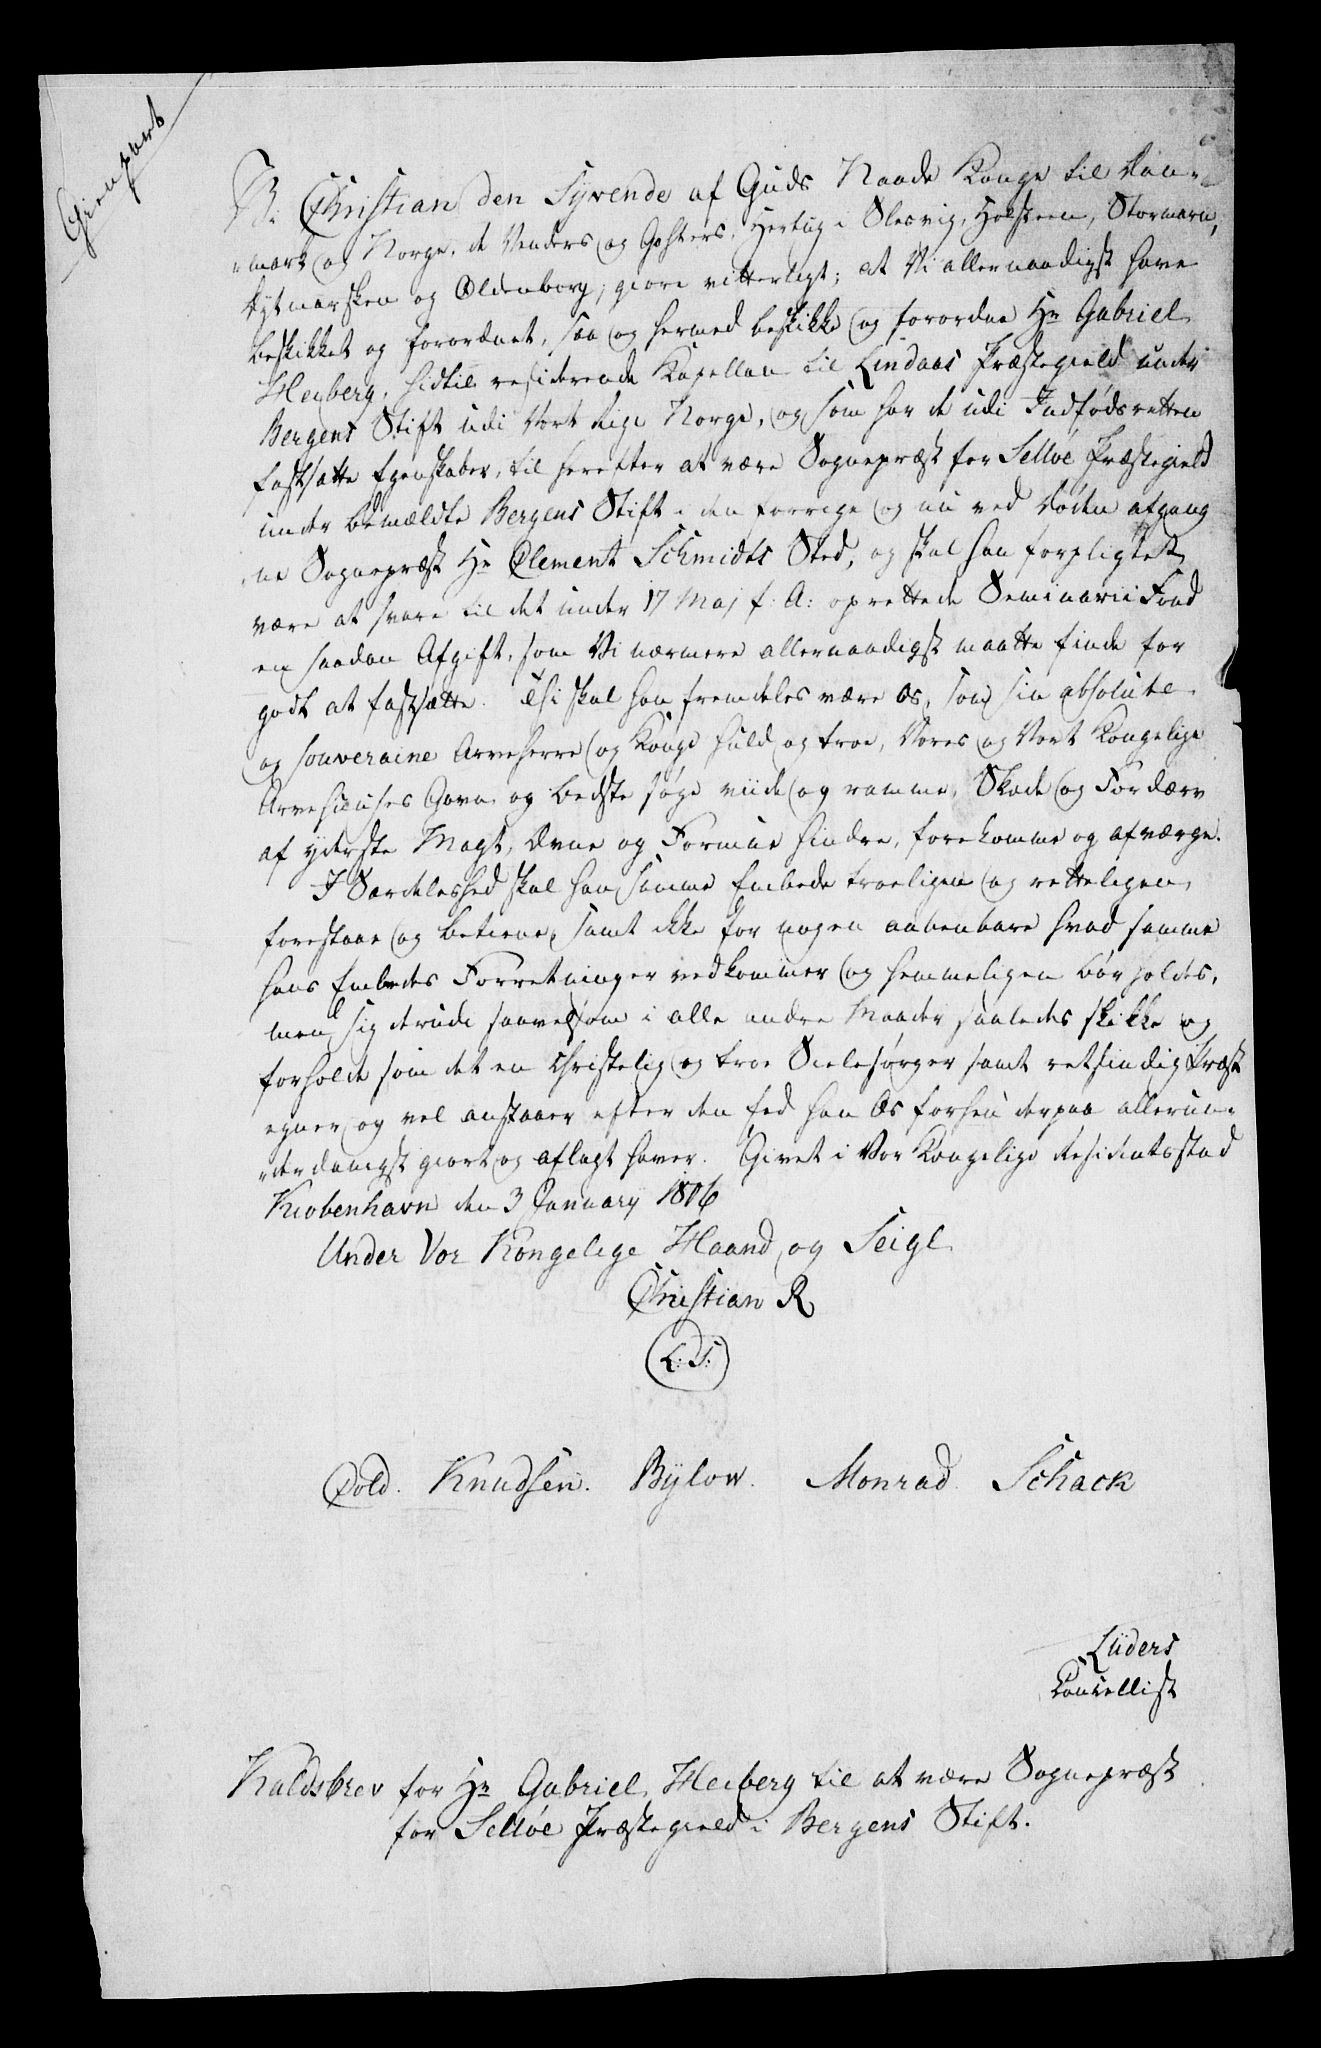 Gienpart
Vi Christian den Syvende af Guds Naade Konge til Dan-
-mark og Norge, de Venders og Gothers, Hertug i Slesvig, Holsteen, Stormarn,
Dytmarsken og Oldenborg, giøre vitterligt; at Vi allernaadigst have
beskikket og forordnet, saa og hermed beskikke og forordne Hr Gabriel
Heiberg, hidtil residerende Kapellan til Lindaas Præstegield under
Bergens Stift udi Vort Rige Norge, og som har de udi Indfødsretten
fastsatte Egenskaber, til herefter at være Sognepræst for Selløe Præstegield
under bemældte Bergens Stift i den forrige og nu ved Døden afgang
ne Sognepræst Hr Clement Schmidts Sted, og skal han forpligtet
være at svare til det under 17 Maj f: A: oprettede Seminarii Fond
en saadan Afgift, som Vi nærmere allernaadigst maatte finde for
godt at fastsætte. Thi skal han fremdeles være Os, som sin absolute
og souveraine Arveherre og Konge huld og troe, Vores og Vort Kongelige
Arvehuuses Gavn og bedste søge viide og ramme, Skade og Fordærv
af yderste Magt, Evne og Formue hindre, forekomme og afværge.
I Særdeleshed skal han samme Embede troeligen og retteligen
forestaae og betiene, samt ikke for nogen aabenbare hvad samme
hans Embeds Forretninger vedkommer og hemmeligen bør holdes,
men sig derudi saavelsom i alle andre Maader saaledes skikke og
forholde som det en christelig og troe Sielesørger samt retsindig Præst
egner og vel anstaaer efter den Eed han Os forhen derpaa allerun-
-derdanigst giort og aflagt haver. Givet i Vor Kongelige Residentsstad
Kiøbenhavn den 3 January 1806
Under Vor Kongelige Haand og Seigl
Christian R
L: S:
Cold. Knudsen. Bylow. Monrad. Schack
Lüders
Cancellist
Kaldsbrev for Hr Gabriel Heiberg til at være Sognepræst
for Selløe Præstegield i Bergens Stift.